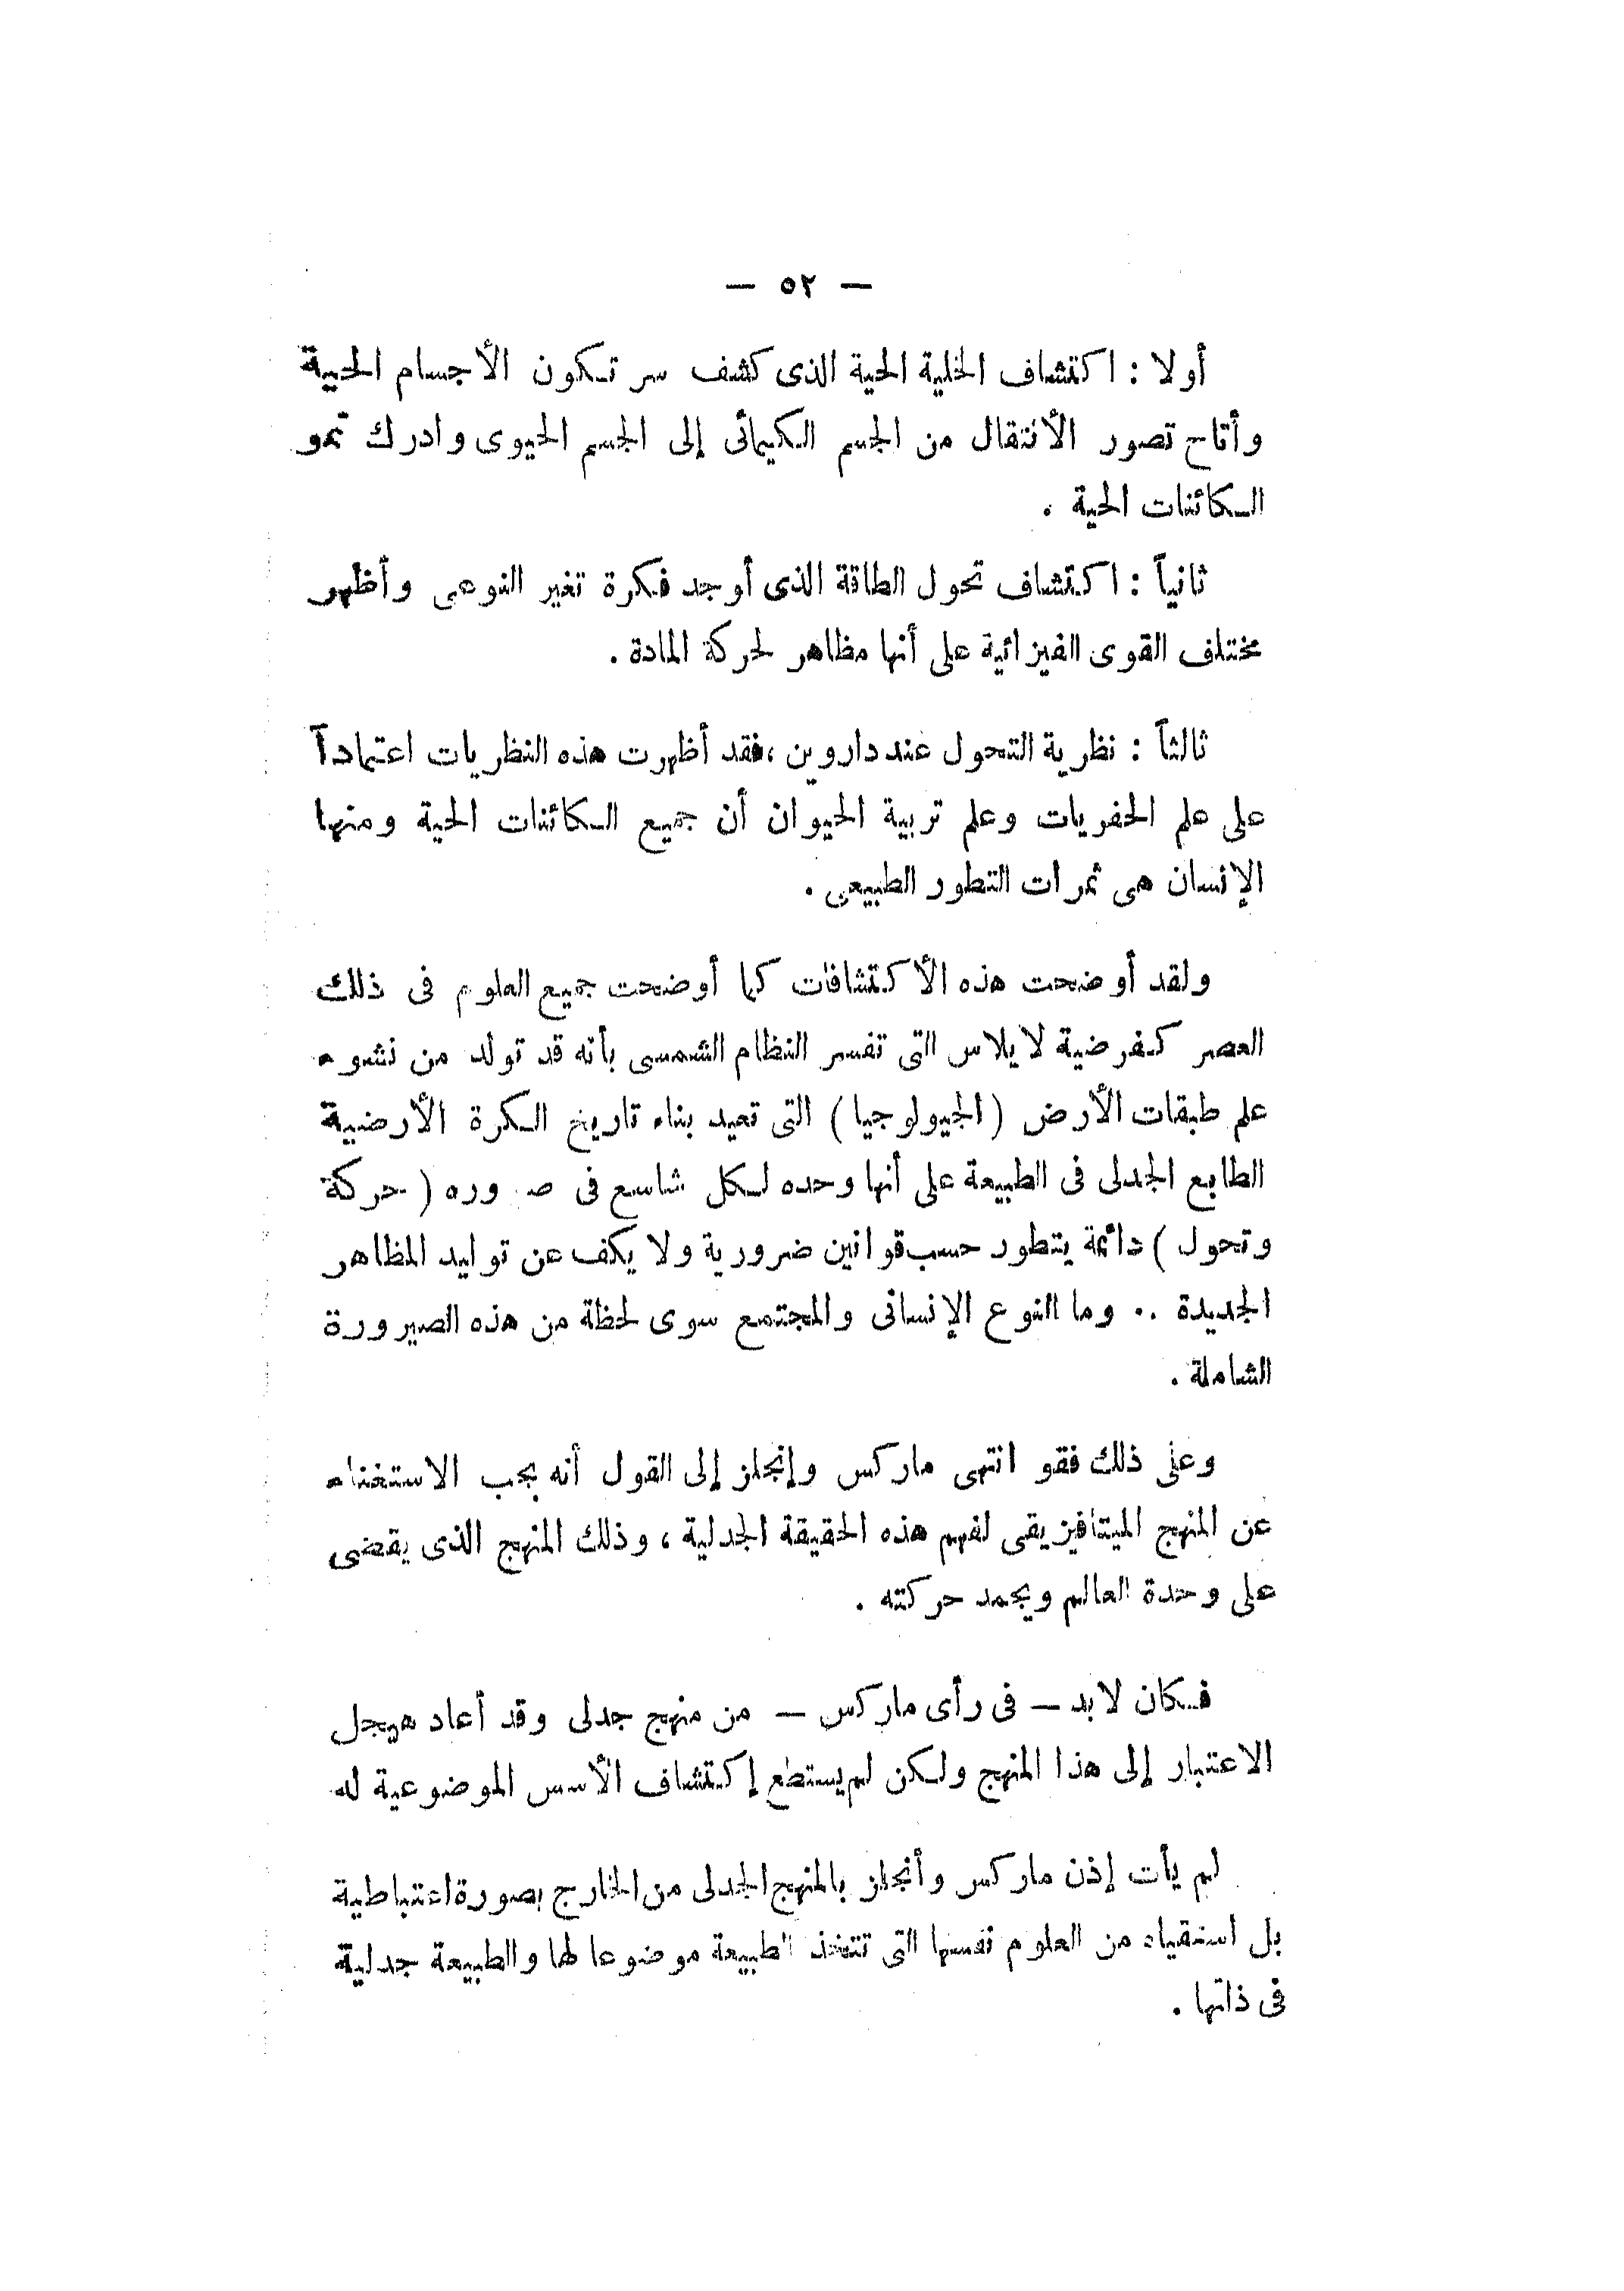 — ٥٢ —
أولا : اكتشاف الخلية الحية الذى كشف سر تكون الأجسام الحية
وأتاح تصور الأنتقال من الجسم الكيمائى إلى الجسم الحيوى وادرك نمو
الكائنات الحية .
ثانياً : اكتشاف تحول الطاقة الذى أوجد فكرة تغير النوعى وأظهر
مختلف القوى الفيزائية على أنها مظاهر لحركة المادة .
ثالثاً : نظرية التحول عند داروين ، فقد أظهرت هذه النظريات اعتماداً
على علم الحفريات وعلم تربية الحيوان أن جميع الكائنات الحية ومنها
الإنسان هى ثمرات التطور الطبيعى .
ولقد أوضحت هذه الأكتشافات كما أوضحت جميع العلوم فى ذلك
العصر كفرضية لابلاس التى تفسر النظام الشمسى بأنه قد تولد من نشوء
علم طبقات الأرض ( الجيولوجيا ) التى تعيد بناء تاريخ الكرة الأرضية
الطابع الجدلى فى الطبيعة على أنها وحده لكل شاسع فى ( حركة
وتحول ) دائمة يتطور حسب قوانين ضرورية ولا يكف عن توليد المظاهر
الجديدة .. وما النوع الإنسانى والمجتمع سوى لحظة من هذه الصيرورة
الشاملة .
وعلى ذلك فقو انتهى ماركس وإنجلز إلى القول أنه يجب الاستغناء
عن المنهج الميتافيزيقى لفهم هذه الحقيقة الجدلية ، وذلك المنهج الذى يقضى
على وحدة العالم ويجمد حركته .
فكان لابد — فى رأى ماركس — من منهج جدلى وقد أعاد هيجل
الاعتبار إلى هذا المنهج ولكن لم يستطع إكتشاف الأسس الموضوعية له
لم يأت إذن ماركس وأنجلز بالمنهج الجدلى من الخارج بصورة اعتباطية
بل استقياه من العلوم نفسها التى تتخذ الطبيعة موضوعا لها والطبيعة جدلية
فى ذاتها .